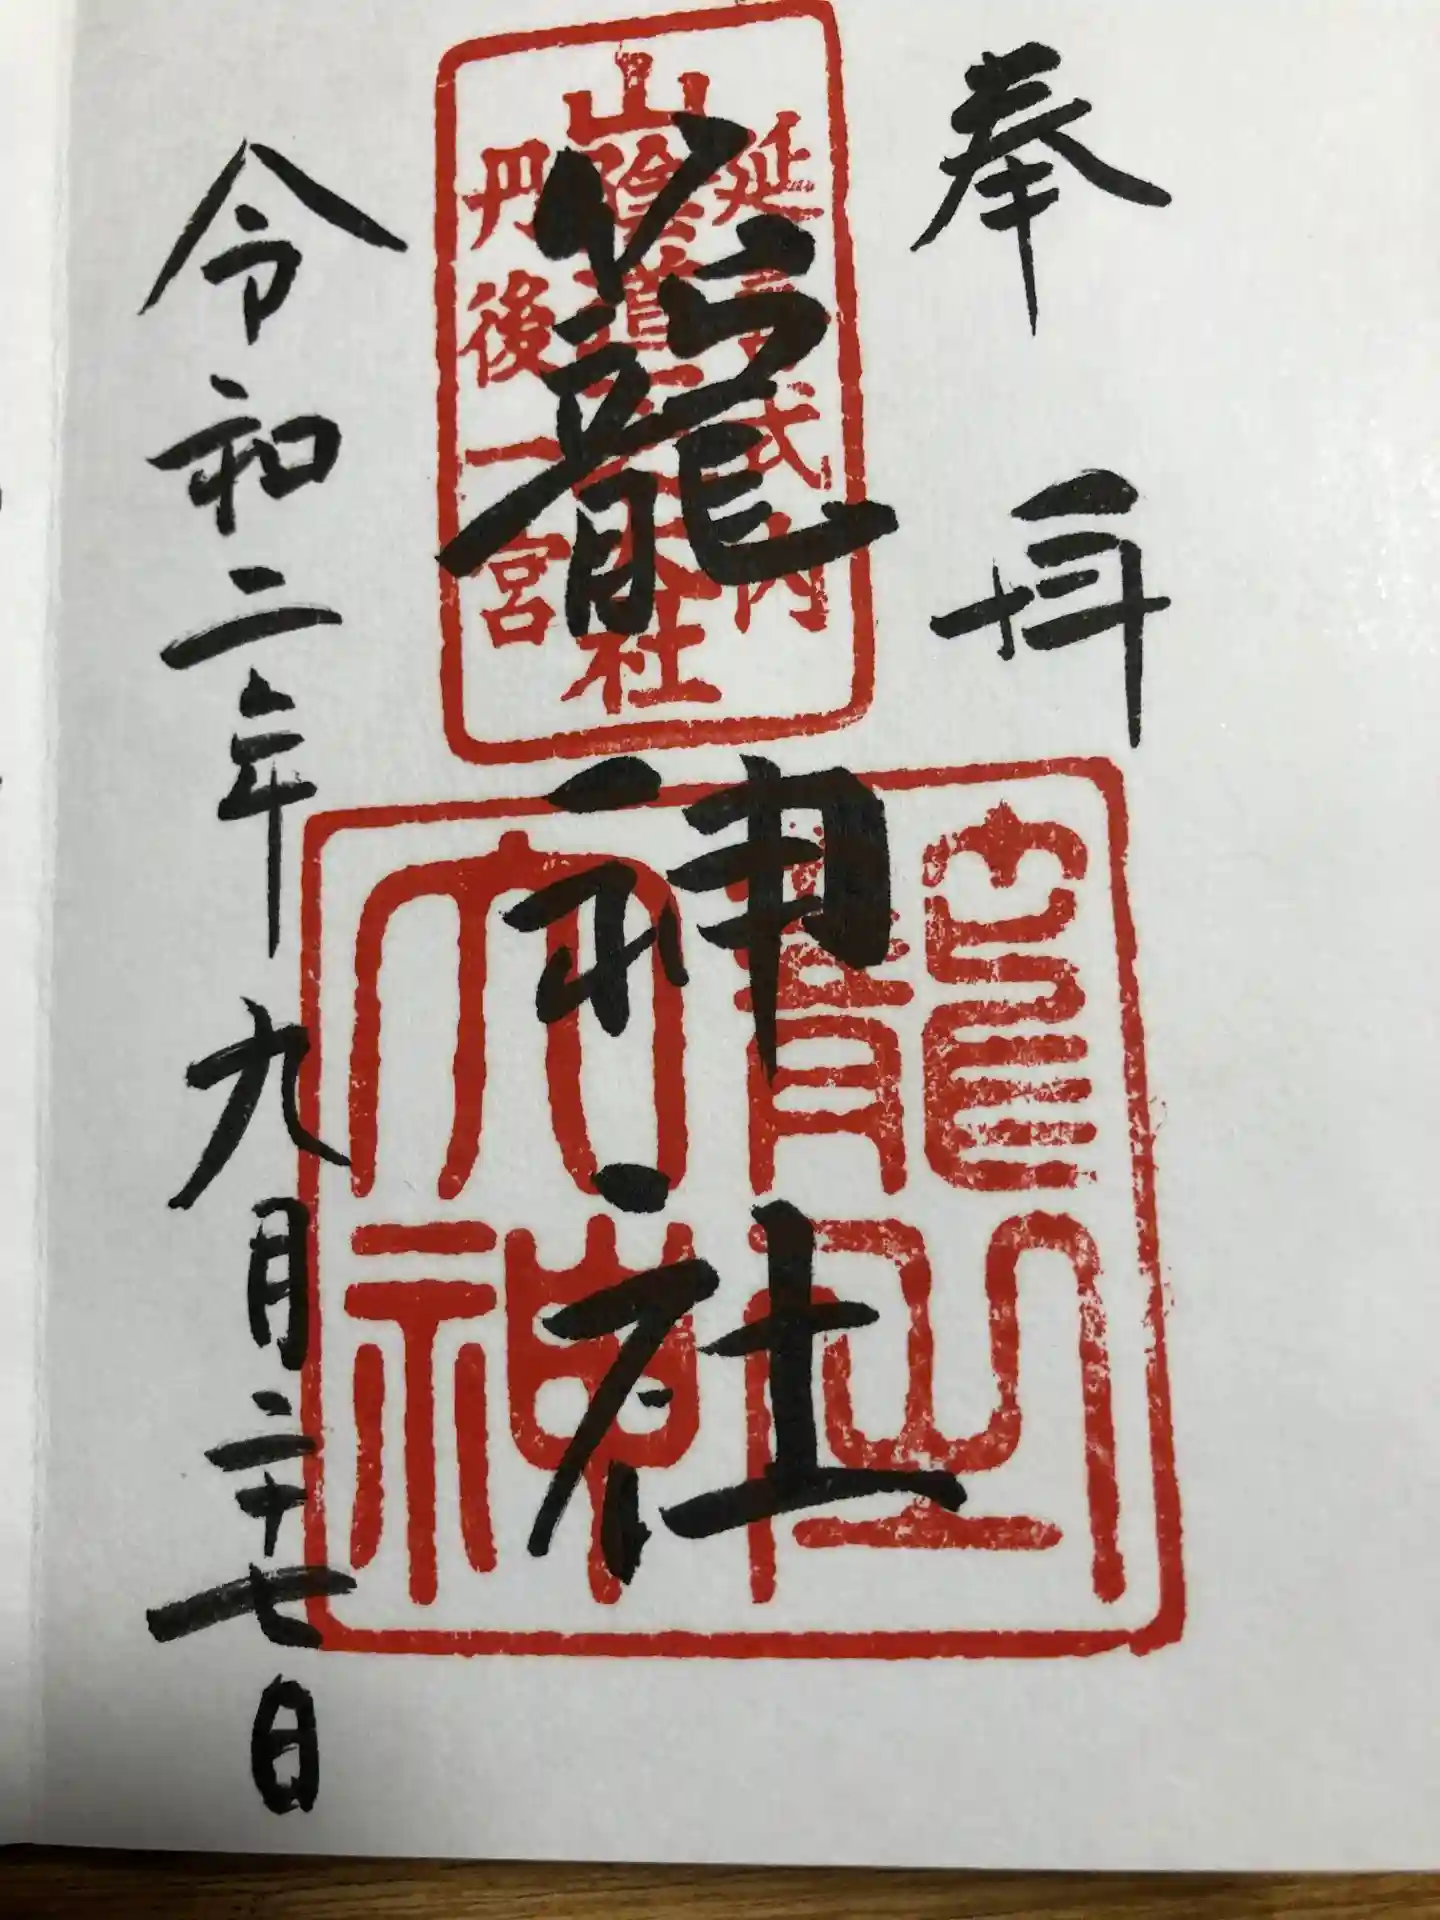 奉拝
延喜式内
山陰道一之大社
丹後一宮
籠神社
籠之大神
令和二年九月二十七日